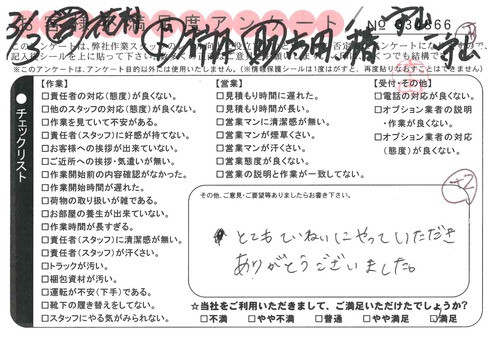 お客様満足度アンケート No 030866
このアンケートは、弊社作業スタッフの
※このアンケートは、アンケート目的以外には使用いたしません。(※情報保護シールは1度はがすと、再度貼りなおすことはできません)
チェックリスト
【作業】
□責任者の対応(態度)が良くない。
□他のスタッフの対応(態度)が良くない。
□作業を見ていて不安がある。
□責任者(スタッフ)に好感が持てない。
□お客様への挨拶が出来ていない。
□ご近所への挨拶・気遣いが無い。
□作業開始前の内容確認がなかった。
□作業開始時間が遅れた。
□荷物の取り扱いが雑である。
□お部屋の養生が出来ていない。
□作業時間が長すぎる。
□責任者(スタッフ)に清潔感が無い。
□責任者(スタッフ)が汗くさい。
□トラックが汚い。
□梱包資材が汚い。
□運転が不安(下手)である。
□靴下の履き替えをしてない。
□スタッフにやる気がみられない。
【営業】
□見積もり時間に遅れた。
□見積もり時間が長い。
□営業マンに清潔感が無い。
□営業マンが煙草くさい。
□営業マンが汗くさい。
□営業態度が良くない。
□営業の説明と作業が一致してない。
【受付・その他】
□電話の対応が良くない。
□オプション業者の説明・作業が良くない。
□オプション業者の対応(態度)が良くない。
+2
その他、ご意見・ご要望等ありましたらお書き下さい。
とてもていねいにやっていただき
ありがとうございました。
☆当社をご利用いただきまして、ご満足いただけたでしょうか?
□不満 □やや不満 □普通 □やや満足 □満足